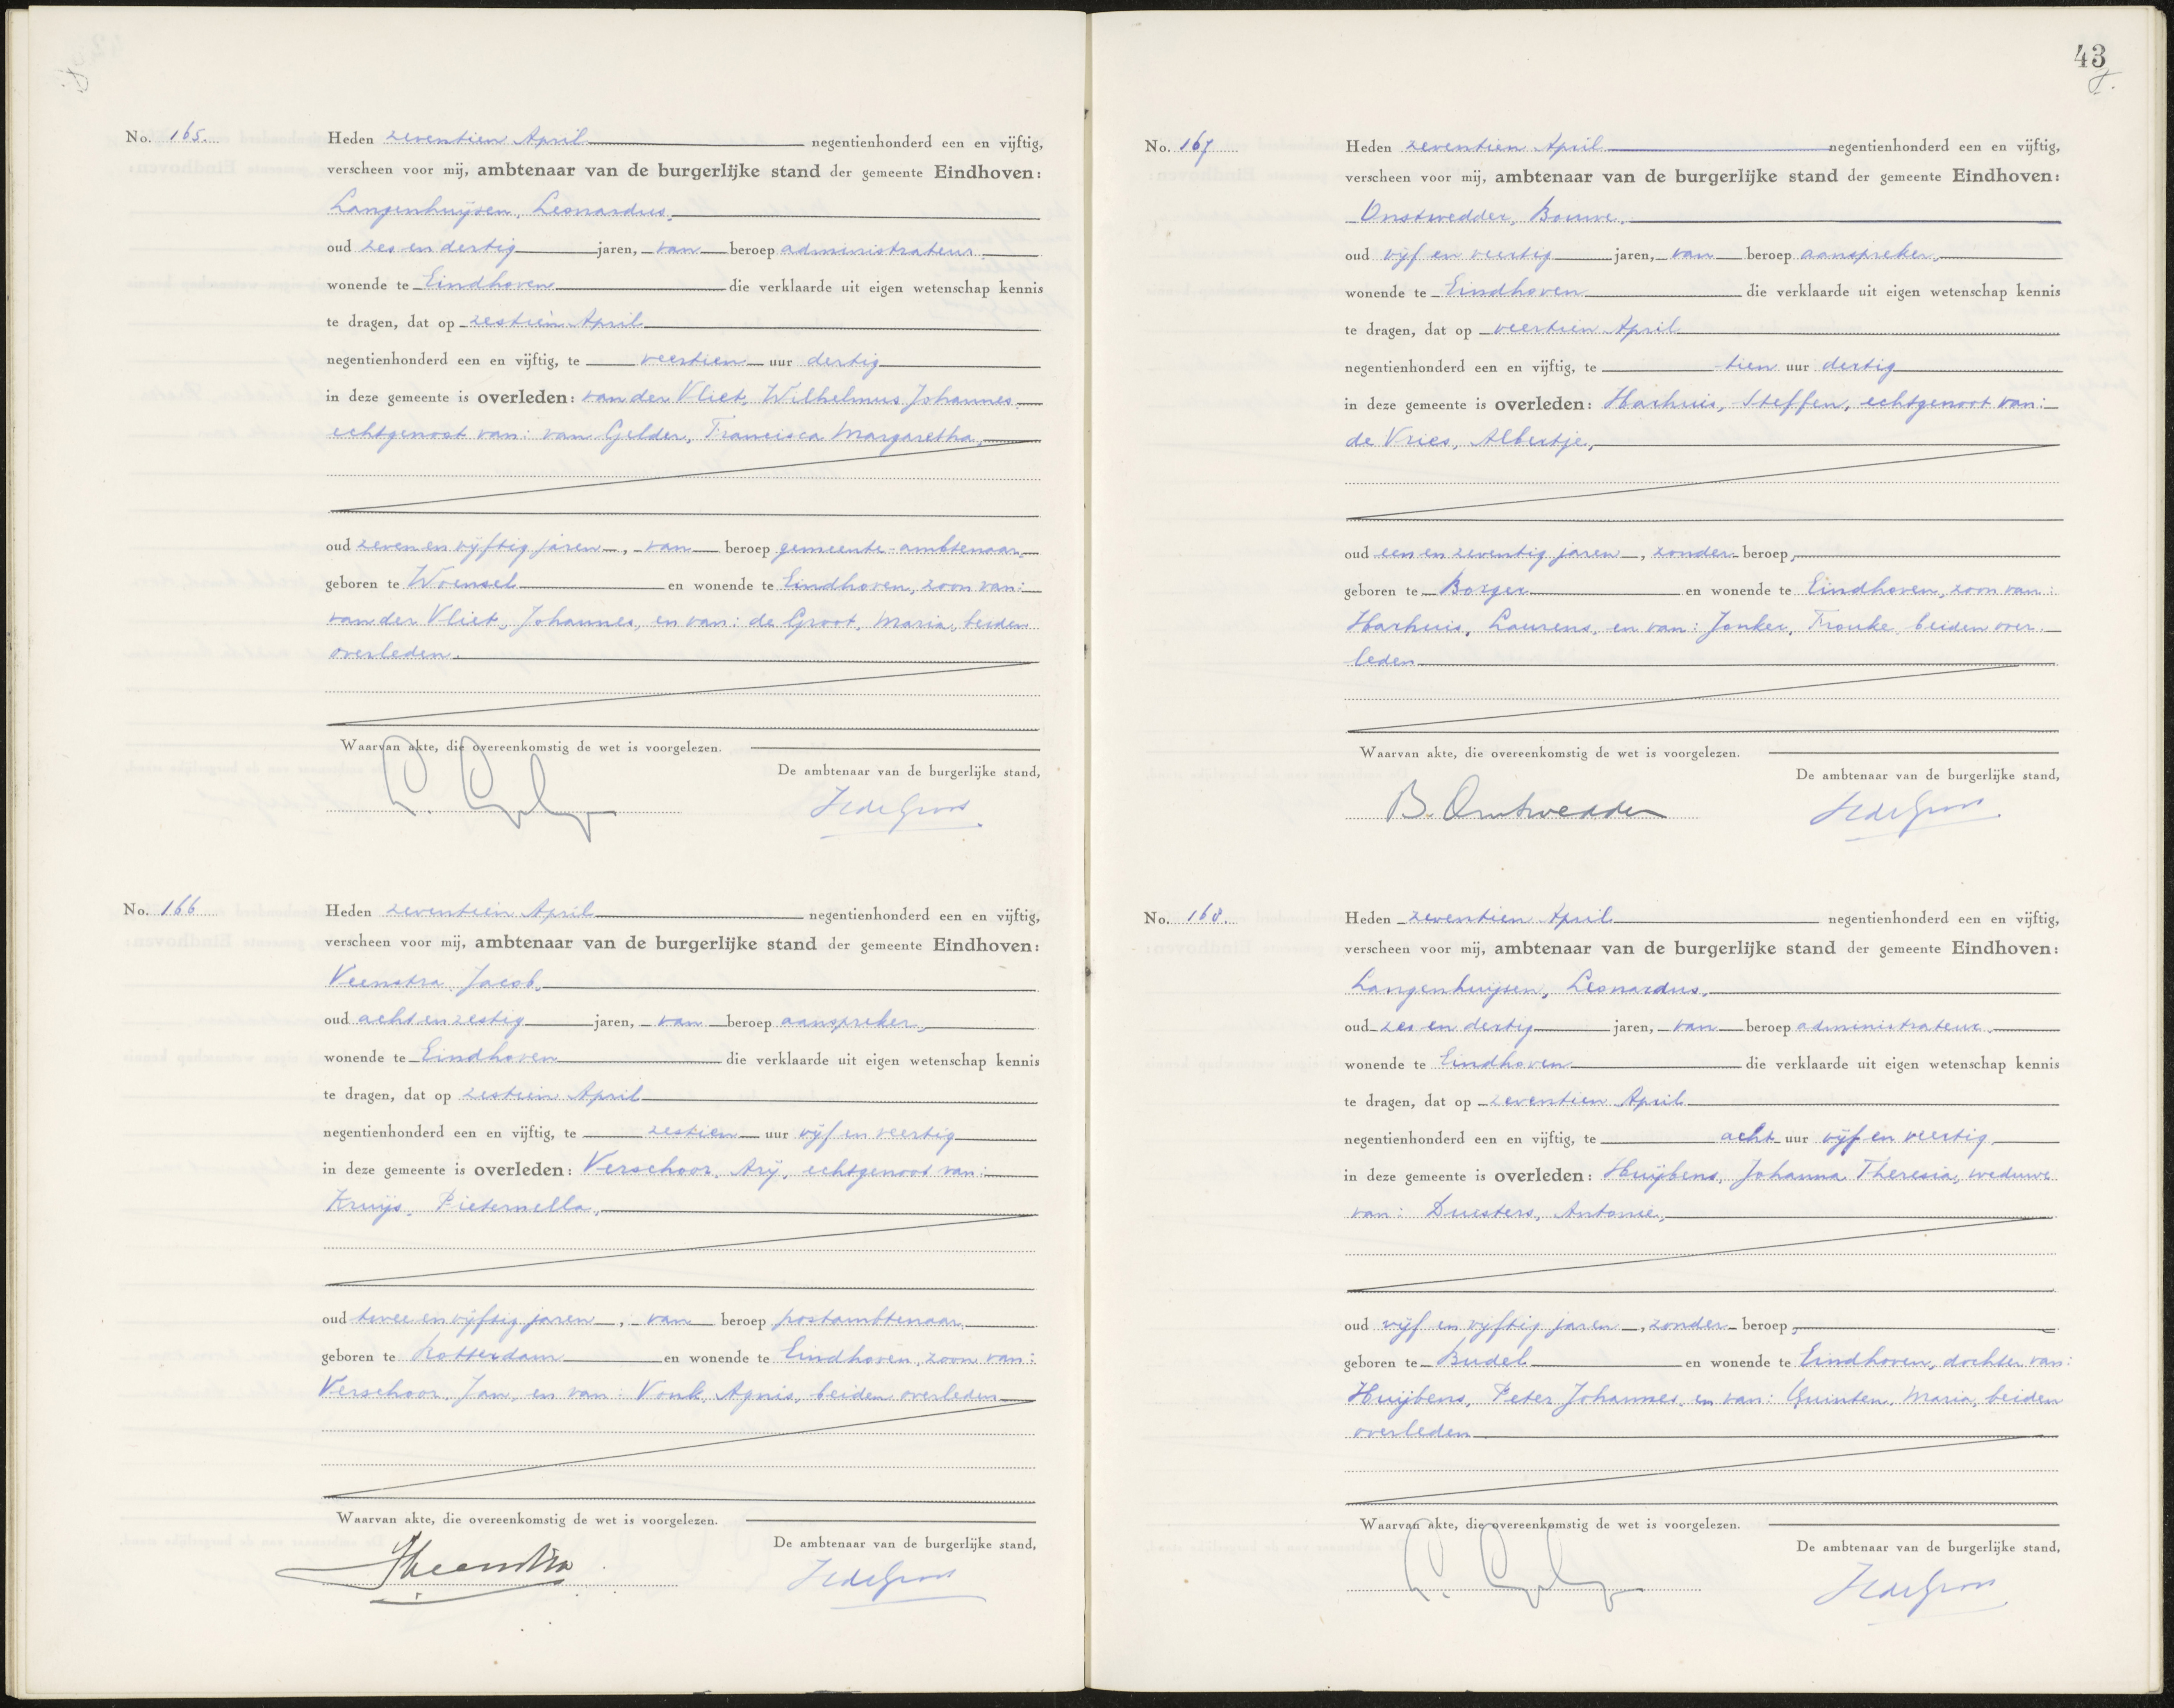 No. 165.
Heden zeventien April negentienhonderd een en vijftig,
verscheen voor mij, ambtenaar van de burgerlijke stand der gemeente Eindhoven:
Langenhuijsen, Leonardus,
oud zes en dertig jaren, van beroep administrateur,
wonende te Eindhoven die verklaarde uit eigen wetenschap kennis
te dragen, dat op zestien April
negentienhonderd een en vijftig, te veertien uur dertig
in deze gemeente is overleden: van der Vliet, Wilhelmus Johannes,
echtgenoot van: van Gelder, Francisca Margaretha,
oud zeven en vijftig jaren, van beroep gemeente-ambtenaar,
geboren te Woensel en wonende te Eindhoven, zoon van:
van der Vliet, Johannes, en van: de Groot, Maria, beiden
overleden.
Waarvan akte, die overeenkomstig de wet is voorgelezen.
De ambtenaar van de burgerlijke stand,
No. 166
Heden zeventien April negentienhonderd een en vijftig,
verscheen voor mij, ambtenaar van de burgerlijke stand der gemeente Eindhoven:
Veenstra, Jacob,
oud acht en zestig jaren, van beroep aanspreker,
wonende te Eindhoven die verklaarde uit eigen wetenschap kennis
te dragen, dat op zestien April
negentienhonderd een en vijftig, te zestien uur vijf en veertig
in deze gemeente is overleden: Verschoor, Arij, echtgenoot van:
Kruijs, Pieternella,
oud twee en vijftig jaren, van beroep postambtenaar,
geboren te Rotterdam en wonende te Eindhoven, zoon van:
Verschoor, Jan, en van: Vonk, Agnis, beiden overleden
Waarvan akte, die overeenkomstig de wet is voorgelezen.
De ambtenaar van de burgerlijke stand,
43
No. 167
Heden zeventien April negentienhonderd een en vijftig,
verscheen voor mij, ambtenaar van de burgerlijke stand der gemeente Eindhoven:
Onstwedder, Bouwe,
oud vijf en veertig jaren, van beroep aanspreker,
wonende te Eindhoven die verklaarde uit eigen wetenschap kennis
te dragen, dat op veertien April
negentienhonderd een en vijftig, te tien uur dertig
in deze gemeente is overleden: Harhuis, Steffen, echtgenoot van:
de Vries, Albertje,
oud een en zeventig jaren, zonder beroep,
geboren te Borger en wonende te Eindhoven, zoon van:
Harhuis, Laurens, en van: Jonker, Frouke, beiden over-
leden
Waarvan akte, die overeenkomstig de wet is voorgelezen.
De ambtenaar van de burgerlijke stand,
B. Onstwedder
No. 168.
Heden zeventien April negentienhonderd een en vijftig,
verscheen voor mij, ambtenaar van de burgerlijke stand der gemeente Eindhoven:
Langenhuijsen, Leonardus,
oud zes en dertig jaren, van beroep administrateur,
wonende te Eindhoven die verklaarde uit eigen wetenschap kennis
te dragen, dat op zeventien April
negentienhonderd een en vijftig, te acht uur vijf en veertig,
in deze gemeente is overleden: Huijbens, Johanna Theresia, weduwe
van: Duisters, Antonie,
oud vijf en vijftig jaren, zonder beroep,
geboren te Budel en wonende te Eindhoven, dochter van:
Huijbens, Peter Johannes, en van: Quinten, Maria, beiden
overleden
Waarvan akte, die overeenkomstig de wet is voorgelezen.
De ambtenaar van de burgerlijke stand,